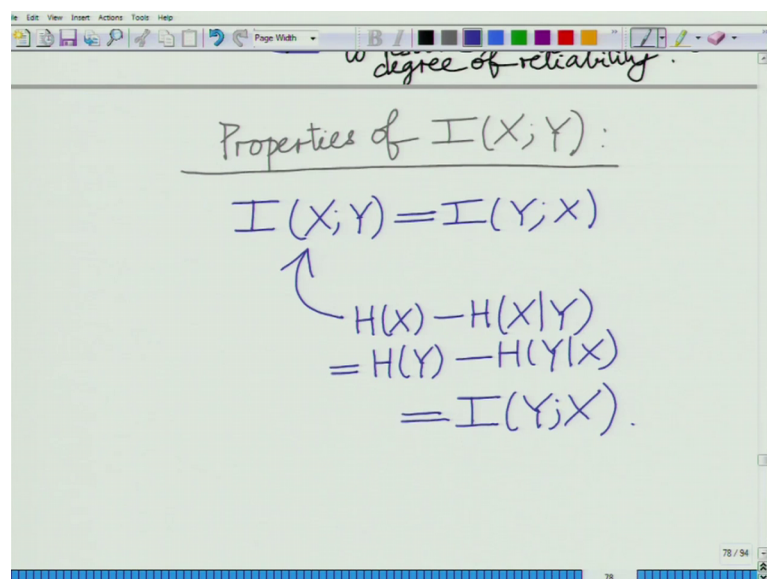 Edit View Insert Actions Tools Help
Page Width
B I
degree of reliability.
Properties of I(X;Y):
I(X;Y)=I(Y;X)
H(X)-H(X|Y)
=H(Y)-H(Y|X)
=I(Y;X).
78 / 94
78